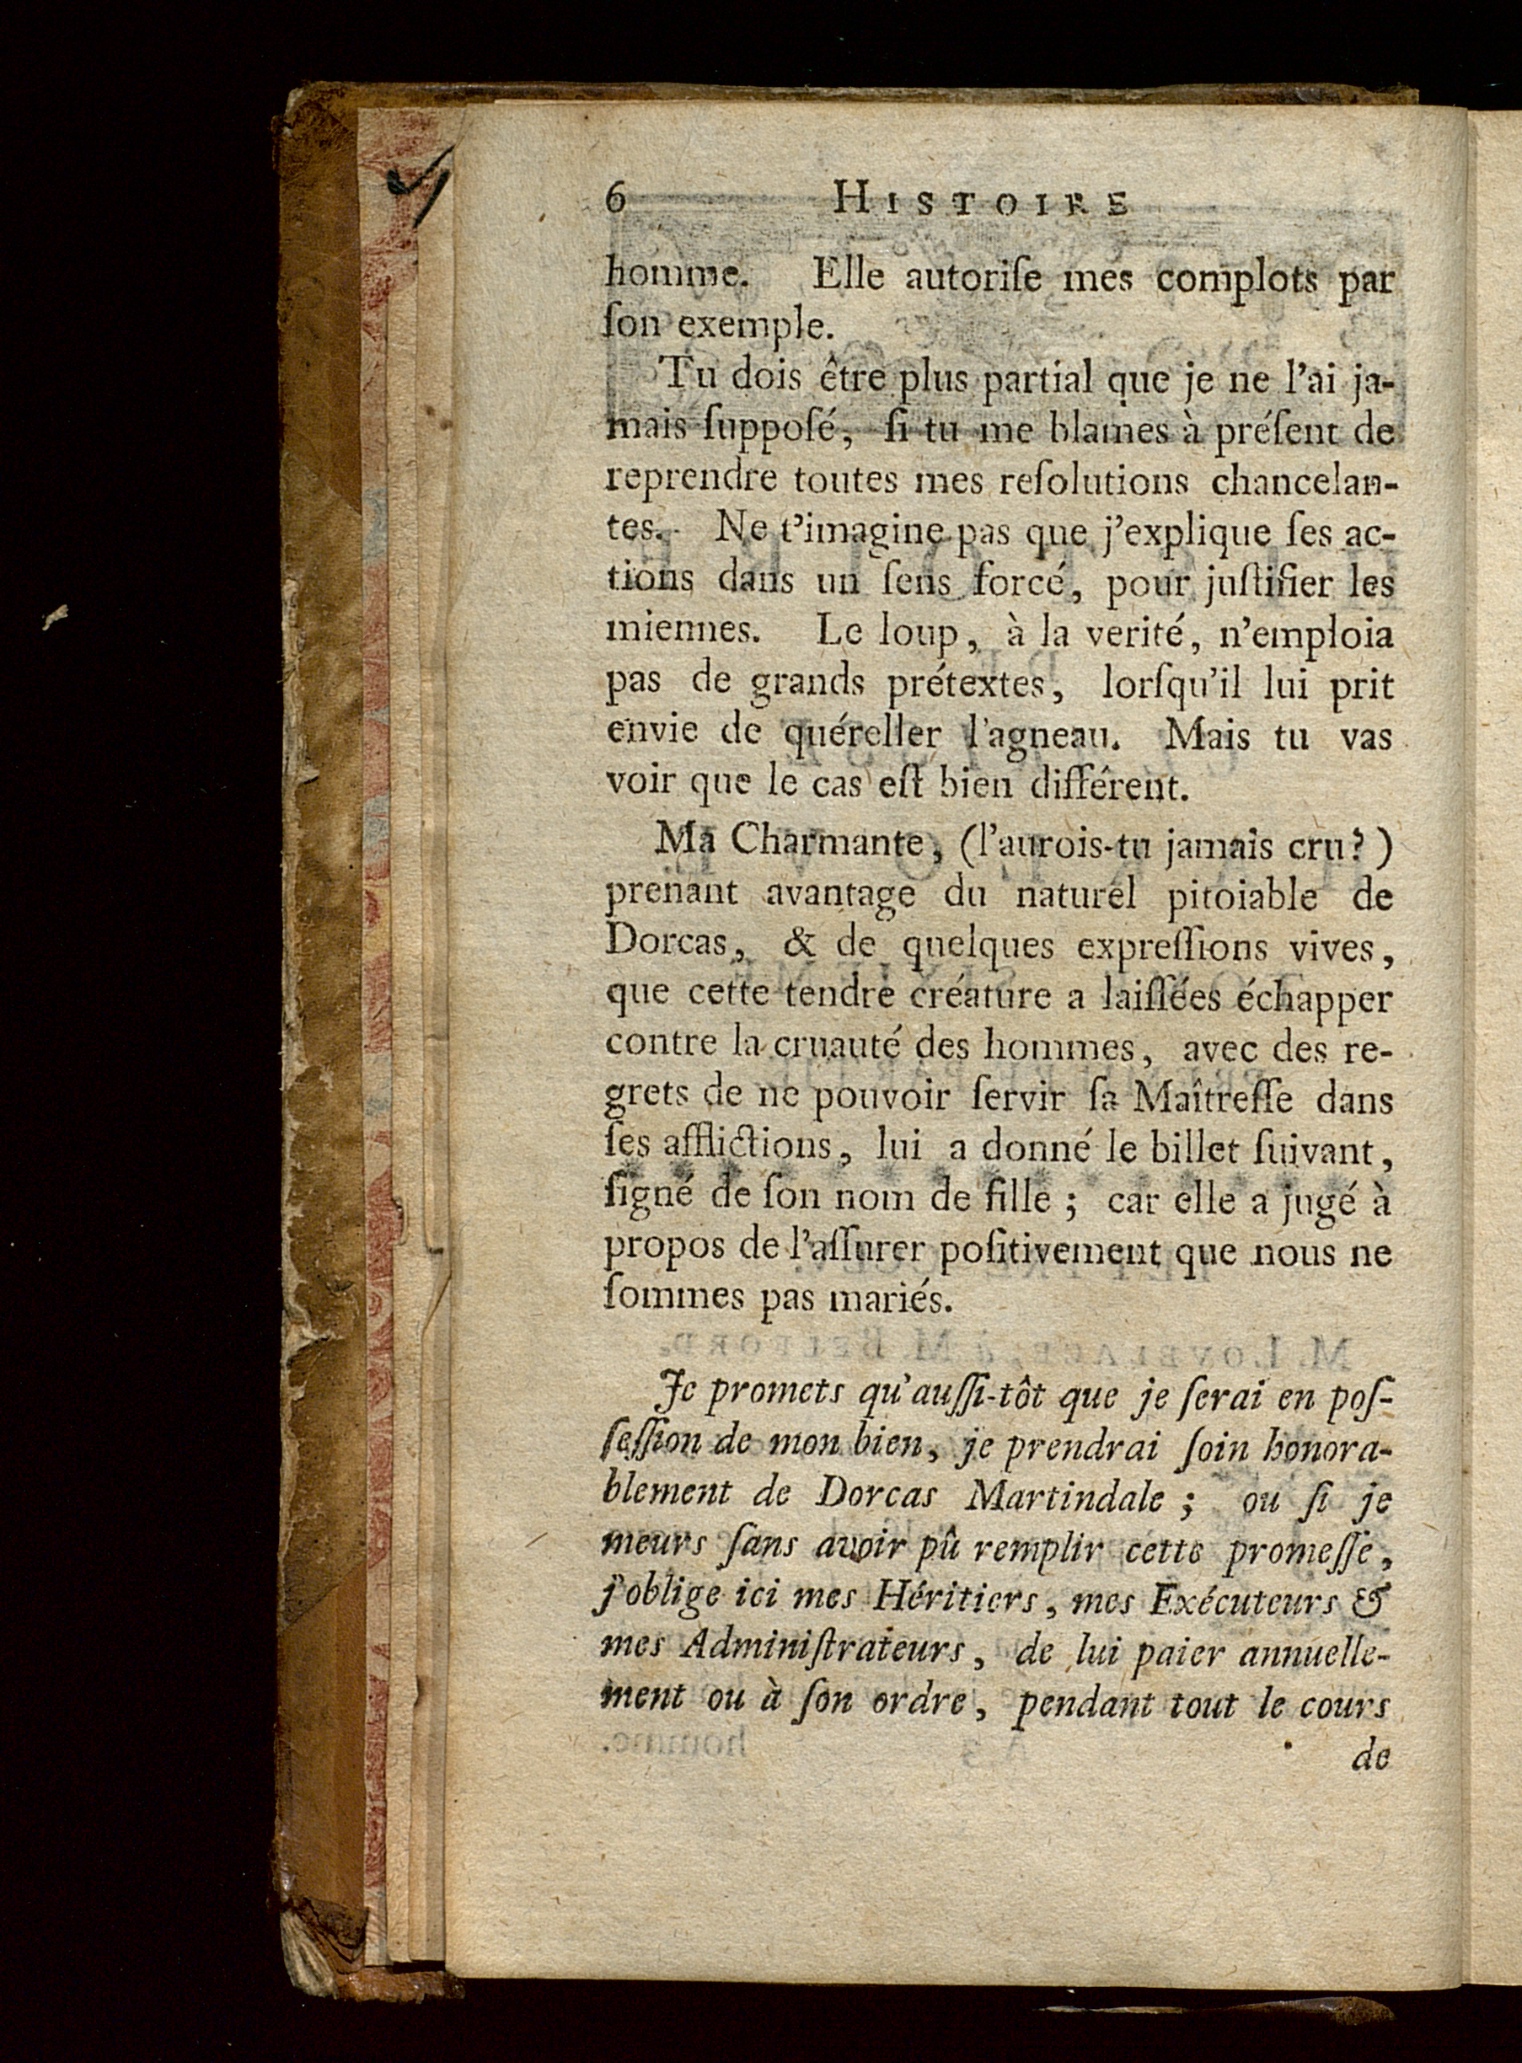 6 HISTOIRE
homme. Elle autoriſe mes complots par
ſon exemple.
Tu dois être plus partial que je ne l'ai ja-
mais ſuppoſé, ſi tu me blames à préſent de
reprendre toutes mes reſolutions chancelan-
tes. Ne t'imagine pas que j'explique ſes ac-
tions dans un ſens forcé, pour juſtifier les
miennes. Le loup, à la verité, n'emploia
pas de grands prétextes, lorſqu'il lui prit
envie de quéreller l'agneau. Mais tu vas
voir que le cas eſt bien différent.
Ma Charmante, (l'aurois-tu jamais cru?)
prenant avantage du naturel pitoiable de
Dorcas, & de quelques expreſſions vives,
que cette tendre créature a laiſſées échapper
contre la cruauté des hommes, avec des re-
grets de ne pouvoir ſervir ſa Maîtreſſe dans
ſes afflictions, lui a donné le billet ſuivant,
ſigné de ſon nom de fille; car elle a jugé à
propos de l'aſſurer poſitivement que nous ne
ſommes pas mariés.
Je promets qu'auſſi-tôt que je ſerai en poſ-
ſeſſion de mon bien, je prendrai ſoin honora-
blement de Dorcas Martindale; ou ſi je
meurs ſans avoir pû remplir cette promeſſe,
j'oblige ici mes Héritiers, mes Exécuteurs &
mes Adminiſtrateurs, de lui paier annuelle-
ment ou à ſon ordre, pendant tout le cours
de